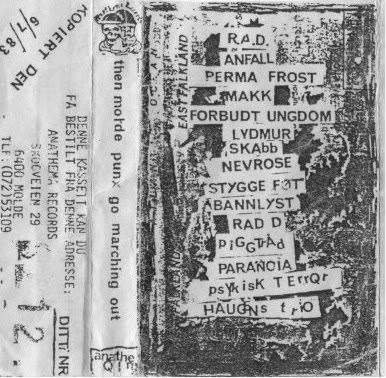 KOPIERT DEN
6/7/83
DENNE KASSETT KAN DU
FÅ BESTILT FRA DENNE ADRESSE:
ANATHEMA RECORDS
SKOLEVEIEN 29
6400 MOLDE
TLF:(072)52109
DITT NR
12
then molde punx go marching out
EASTFALKLAND
R.A.D.
ANFALL
PERMA FROST
MAKK
FORBUDT UNGDOM
LYDMUR
SKAbb
NEVROSE
STYGGE FØT
BANNLYST
RAD D
PiGGTRÅd
PARANOIA
psYKisK TErrOr
HAUGNs triO